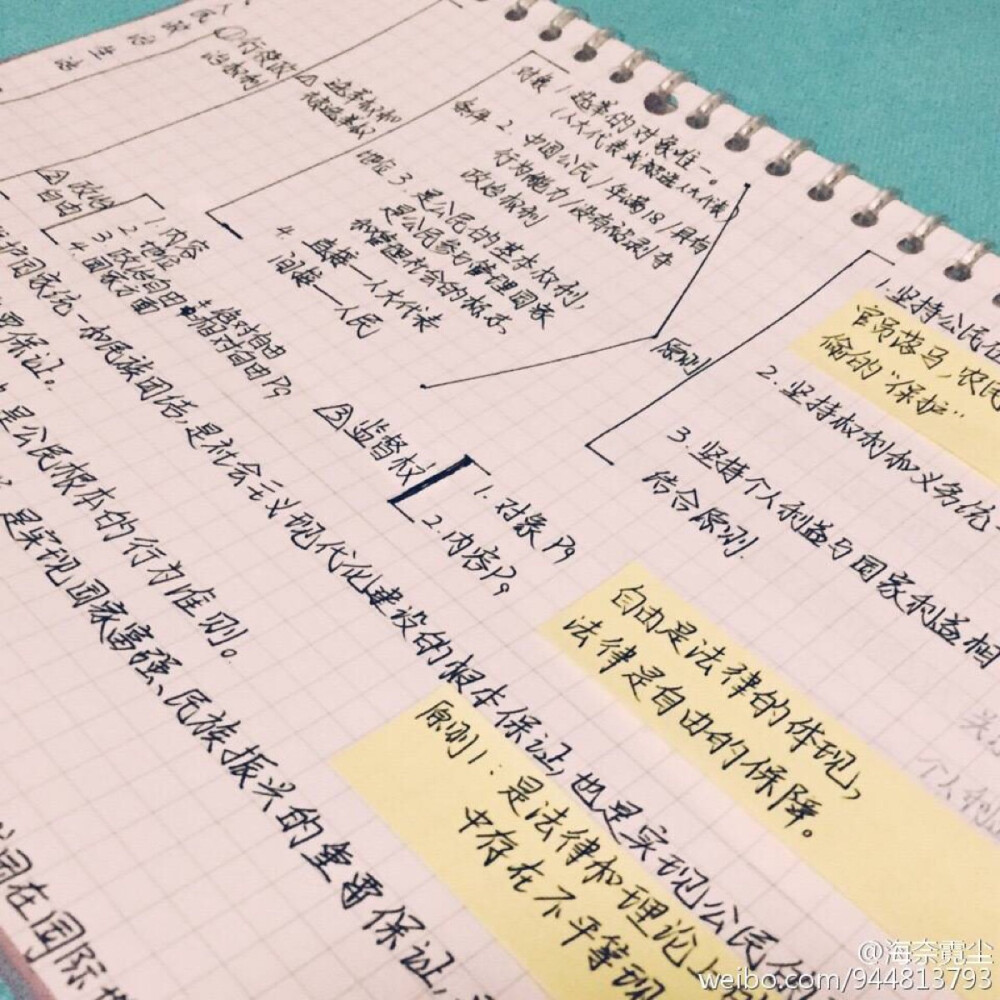 人民
政治生活
①行使政
治权利
△选举权和
被选举权
对象 1. 选举的对象唯一。
(人大代表或村委会
条件 2. 中国公民/年满18/具有
行为能力/没有被剥夺
政治权利
地位 3. 是公民的基本权利,
是公民参与管理国家
和管理社会的标志。
4. 直接—人大代表
间接—人民
△政治
自由
1. 内容
2. 地位
3. 政治自由 ≠绝对自由
相对自由 P9
4. 国家方面
③监督权
1. 对象 P9
2. 内容 P9
原则
1. 坚持公民在
官员落马,农民
偷的“保护”
2. 坚持权利和义务统
3. 坚持个人利益与国家利益相
结合原则
自由是法律的体现,
法律是自由的保障。
原则1:是法律和理论上
中存在不平等现
护国家统一和民族团结,是社会主义现代化建设的根本保证,也是实现公民
要保证。
是公民根本的行为准则。
是实现国家富强、民族振兴的重要保证,
国在国际
个人利
@海奈霓尘
weibo.com/944813793